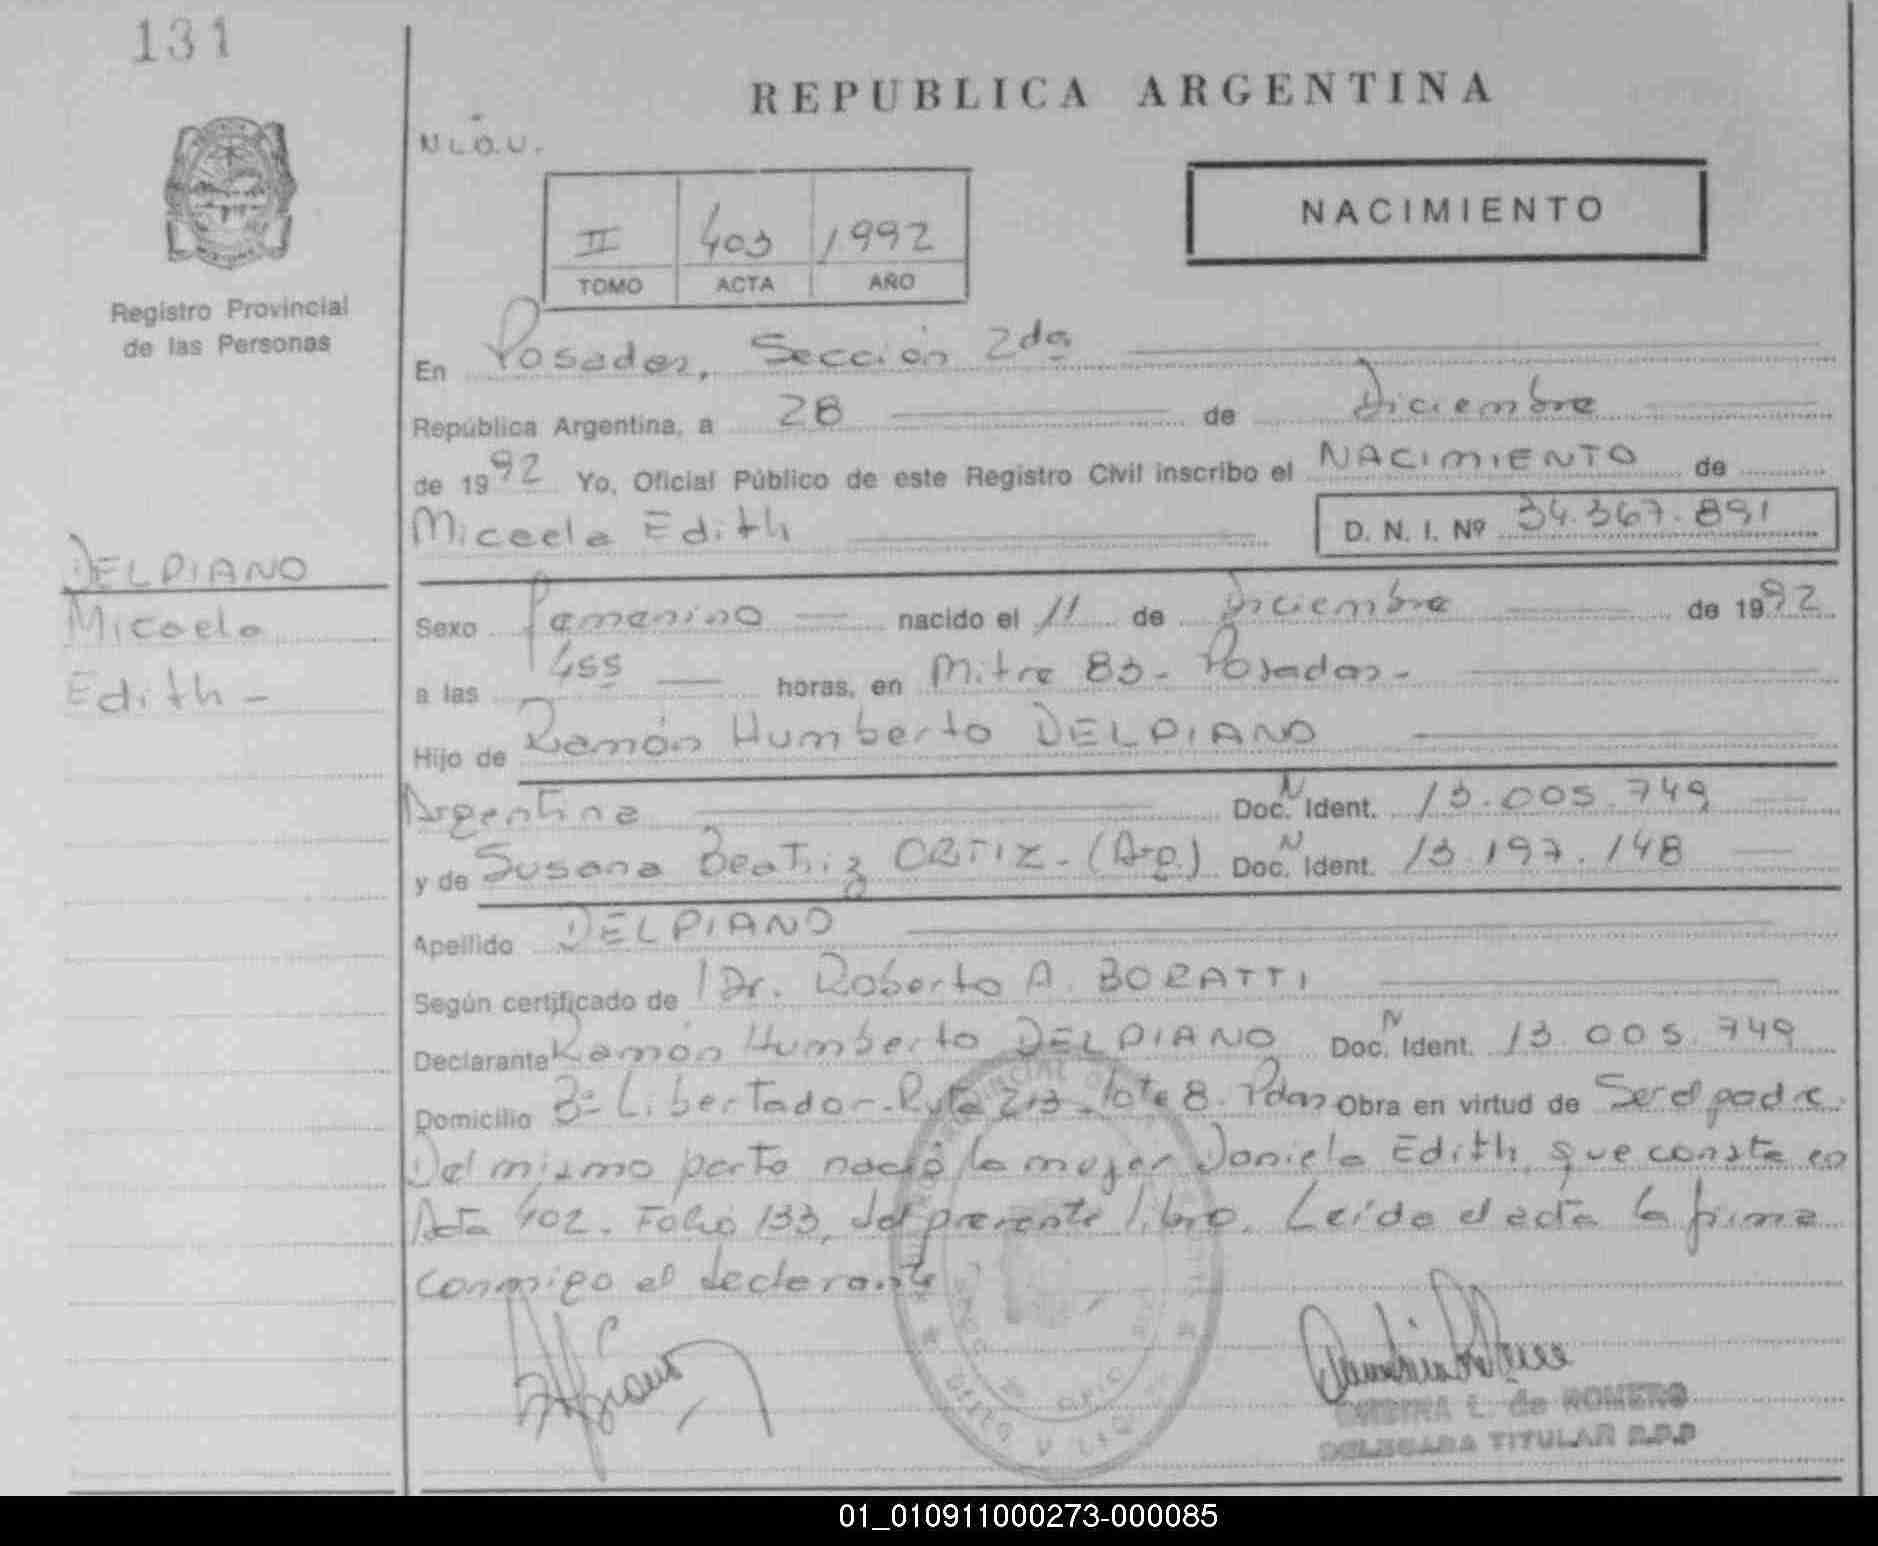 131
REPUBLICA ARGENTINA
NACIMIENTO
II 403 1992
TOMO ACTA AÑO
Registro Provincial
de las Personas
En Posadas, Sección 2da
República Argentina, a 28 de Diciembre
de 1992 Yo, Oficial Público de este Registro Civil inscribo el NACIMIENTO de
Micaela Edith D. N. I. Nº 34.367.891
DELPIANO
Micaela
Edith -
Sexo femenino nacido el 11 de Diciembre de 1992
a las 455 horas, en Mitre 83 - Posadas -
Hijo de Ramón Humberto DELPIANO
Argentina Doc. N Ident. 13.005.749
y de Susana Beatriz ORTIZ - (Arg.) Doc. N Ident. 13.197.148
Apellido DELPIANO
Según certificado de Dr. Roberto A. BORATTI
Declarante Ramón Humberto DELPIANO Doc. N Ident. 13.005.749
Domicilio Bº Libertador - Ruta 213 - lote 8. Pdas Obra en virtud de Ser el padre.
Del mismo parto nació la mujer Daniela Edith, que consta en
Acta 402. Folio 133, del presente libro. Leída el acta la firma
conmigo el declarante
L. de ROMERO
DELEGADA TITULAR R.P.P
01_010911000273-000085